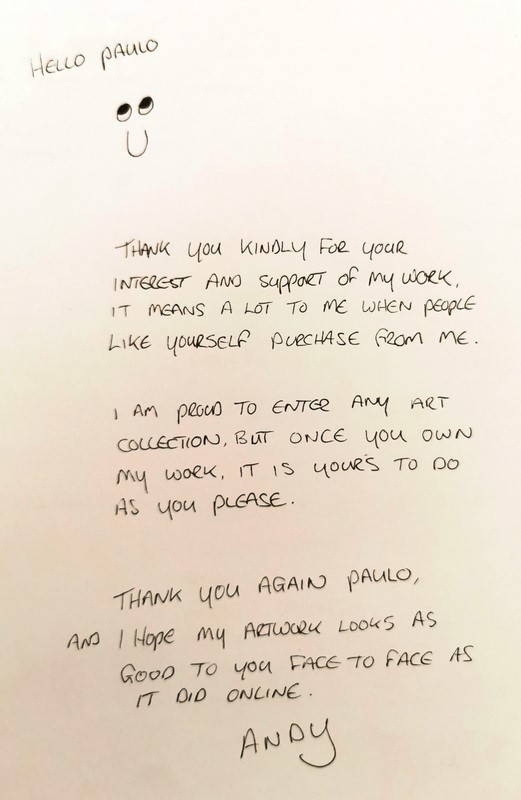 HELLO PAULO
THANK YOU KINDLY FOR YOUR
INTEREST AND SUPPORT OF MY WORK,
IT MEANS A LOT TO ME WHEN PEOPLE
LIKE YOURSELF PURCHASE FROM ME.
I AM PROUD TO ENTER ANY ART
COLLECTION, BUT ONCE YOU OWN
MY WORK, IT IS YOUR'S TO DO
AS YOU PLEASE.
THANK YOU AGAIN PAULO,
AND I HOPE MY ARTWORK LOOKS AS
GOOD TO YOU FACE TO FACE AS
IT DID ONLINE.
ANDY